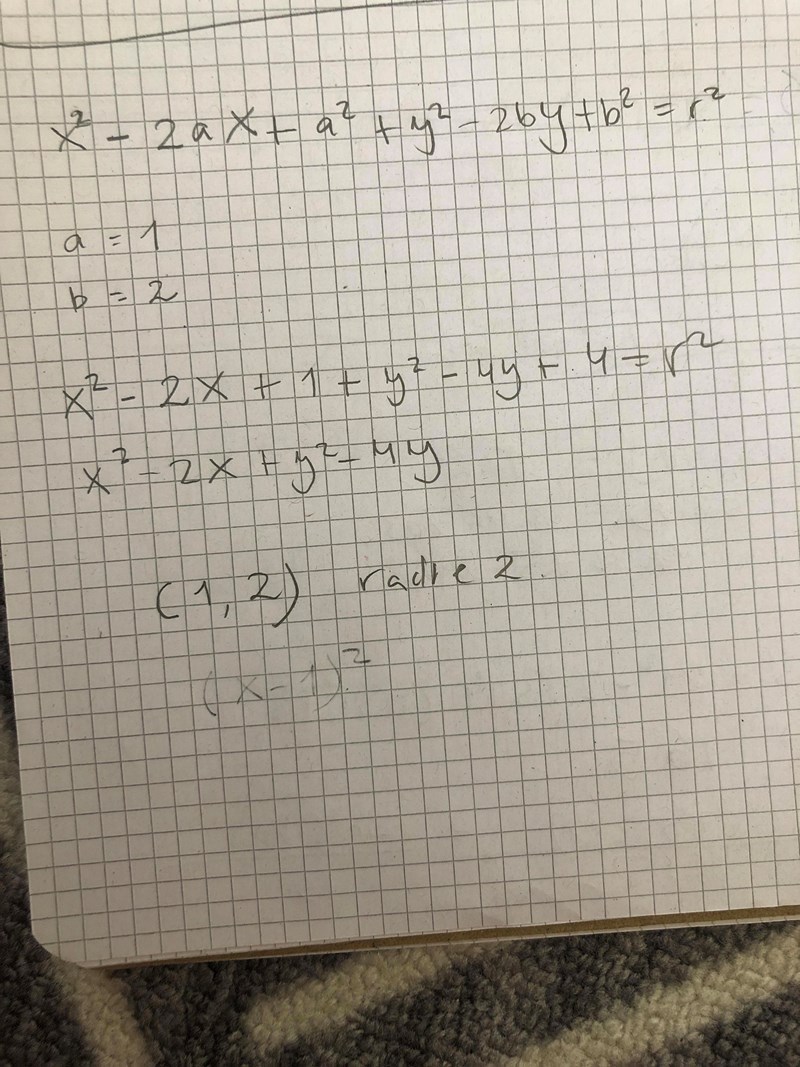 x² - 2ax + a² + y² - 2by + b² = r²
a = 1
b = 2
x² - 2x + 1 + y² - 4y + 4 = r²
x² - 2x + y² - 4y
(1, 2) 2.
(x - 1)²